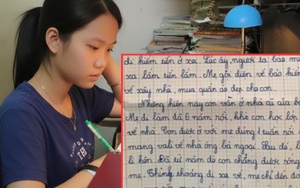 đi kiếm tiền ở xa. Lúc ấy người ta bảo mẹ
xa lắm tiền lắm. Mẹ gửi điện về bảo kiếm
về xây nhà, mua quần áo đẹp cho con.
Nhưng hiện nay con vẫn ở nhà cũ của b
Mẹ đi làm đã 6 năm rồi, khi con học lớp
về nhà. Con được ở với mẹ đúng 1 tuần rồi
mang vali về nhà ông bà ngoại. Sau đó,
li hôn. Đã từ năm đó con chẳng được sống
mẹ. Thỉnh thoảng đi xa về, mẹ chỉ đến đó